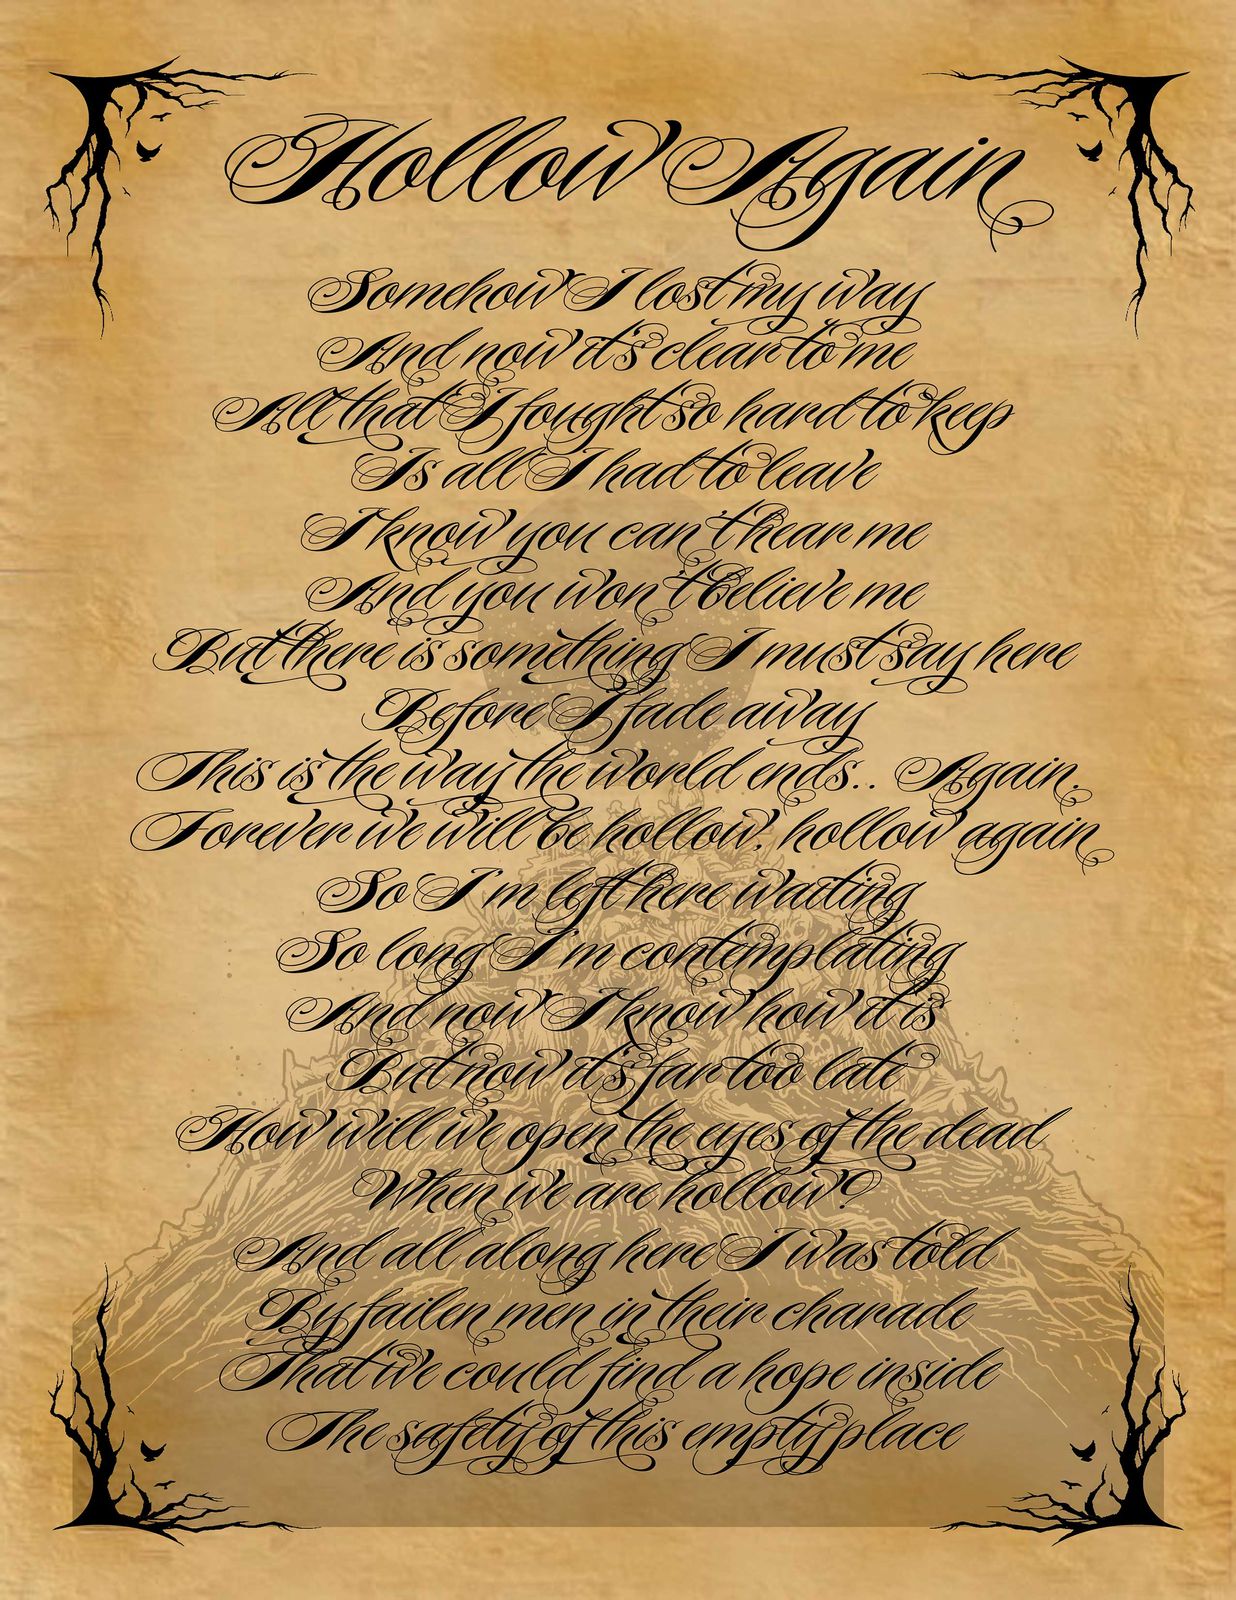 Hollow Again
Somehow I lost my way
And now it's clear to me
All that I fought so hard to keep
Is all I had to leave
I know you can't hear me
And you won't believe me
But there is something I must say here
Before I fade away
This is the way the world ends.. Again.
Forever we will be hollow, hollow again
So I'm left here waiting
So long I'm contemplating
And now I know how it is
But now it's far too late
How will we open the eyes of the dead
When we are hollow?
And all along here I was told
By failen men in their charade
That we could find a hope inside
The safety of this empty place